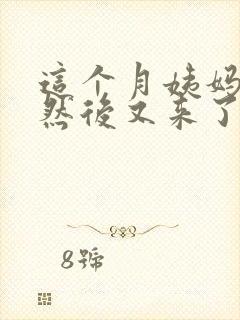 這个月姨妈
然後又来了
8號